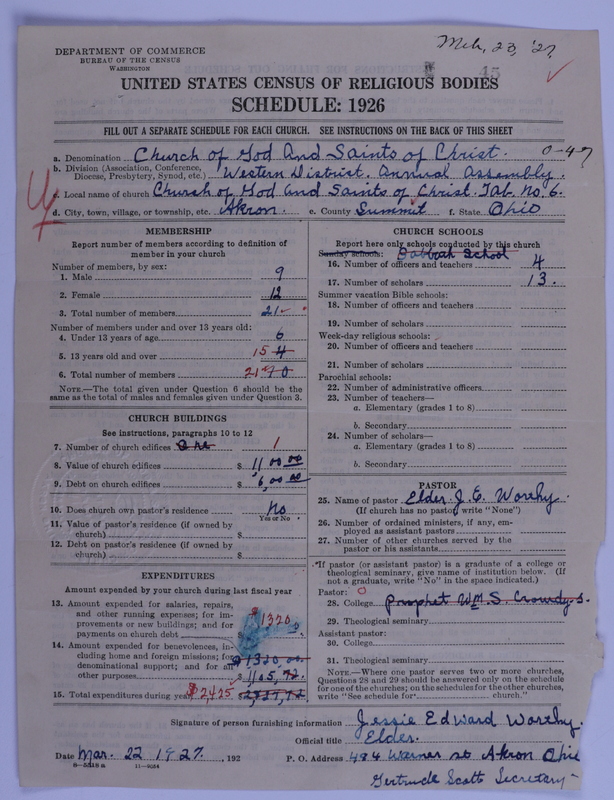 Mch, 23, '27.
DEPARTMENT OF COMMERCE
BUREAU OF THE CENSUS
WASHINGTON
45
UNITED STATES CENSUS OF RELIGIOUS BODIES
SCHEDULE: 1926
FILL OUT A SEPARATE SCHEDULE FOR EACH CHURCH. SEE INSTRUCTIONS ON THE BACK OF THIS SHEET
a. Denomination Church of God And Saints of Christ. 0-47
b. Division (Association, Conference, Diocese, Presbytery, Synod, etc.) Western District. Annual Assembly.
c. Local name of church Church of God and Saints of Christ. Tab. No. 6.
d. City, town, village, or township, etc. Akron. e. County Summit f. State Ohio
MEMBERSHIP
Report number of members according to definition of
member in your church
Number of members, by sex:
1. Male 9
2. Female 12
3. Total number of members 21
Number of members under and over 13 years old:
4. Under 13 years of age 6
5. 13 years old and over 15 4
6. Total number of members 21
NOTE.—The total given under Question 6 should be the
same as the total of males and females given under Question 3.
CHURCH BUILDINGS
See instructions, paragraphs 10 to 12
7. Number of church edifices One 1
8. Value of church edifices $ 1100.00
9. Debt on church edifices $ 600.00
10. Does church own pastor's residence No
Yes or No
11. Value of pastor's residence (if owned by
church) $
12. Debt on pastor's residence (if owned by
church) $
EXPENDITURES
Amount expended by your church during last fiscal year
13. Amount expended for salaries, repairs,
and other running expenses; for im-
provements or new buildings; and for
payments on church debt $1320
14. Amount expended for benevolences, in-
cluding home and foreign missions; for
denominational support; and for all
other purposes $1320.00 1105.72
15. Total expenditures during year $2425
CHURCH SCHOOLS
Report here only schools conducted by this church
Sunday schools: Sabbath School
16. Number of officers and teachers 4
17. Number of scholars 13.
Summer vacation Bible schools:
18. Number of officers and teachers
19. Number of scholars
Week-day religious schools:
20. Number of officers and teachers
21. Number of scholars
Parochial schools:
22. Number of administrative officers
23. Number of teachers—
a. Elementary (grades 1 to 8)
b. Secondary
24. Number of scholars—
a. Elementary (grades 1 to 8)
b. Secondary
PASTOR
25. Name of pastor Elder. J. E. Worthy.
(If church has no pastor write "None")
26. Number of ordained ministers, if any, em-
ployed as assistant pastors
27. Number of other churches served by the
pastor or his assistants
*If pastor (or assistant pastor) is a graduate of a college or
theological seminary, give name of institution below. (If
not a graduate, write "No" in the space indicated.)
Pastor: 0
28. College Prophet Wm. S. Crowdy.s.
29. Theological seminary
Assistant pastor:
30. College
31. Theological seminary
NOTE.—Where one pastor serves two or more churches,
Questions 28 and 29 should be answered only on the schedule
for one of the churches; on the schedules for the other churches,
write "See schedule for church)
Signature of person furnishing information Jessie Edward Worthy.
Official title Elder.
Date Mar. 22 1927. , 192 P. O. Address 484 Warner st Akron Ohio
8—5518a 11—9054
Gertrude Scott Secretary